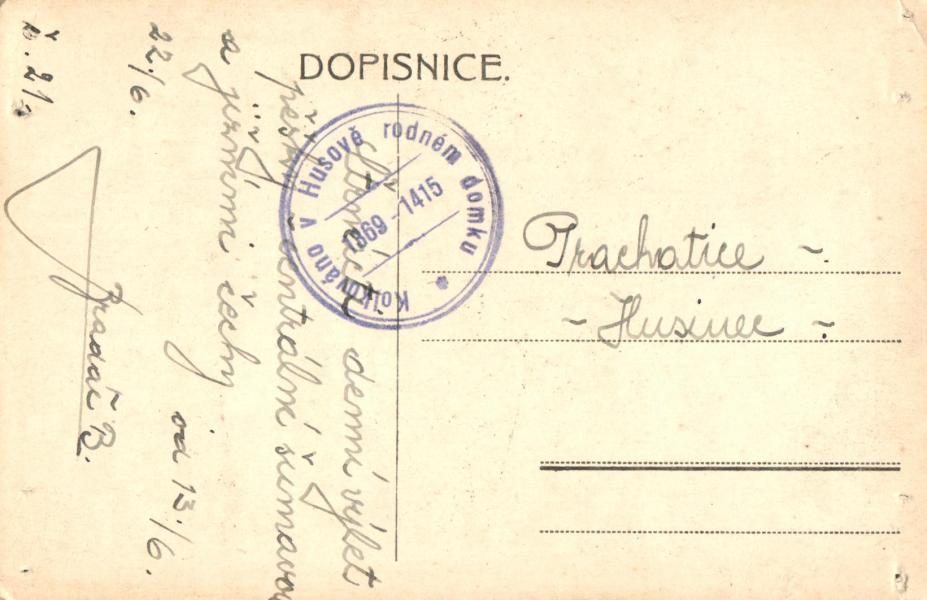 DOPISNICE.
Kolkováno v Husově rodném domku
1369 - 1415
Prachatice -
- Husinec - :
denní výlet
pěšky centrální šumavou
a jižními čechy
od 13./6.
22./6.
Bradáč B.